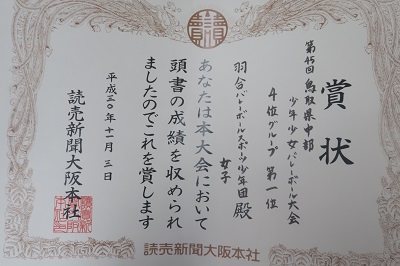 賞状
第45回鳥取県中部
少年少女バレーボール大会
4位グループ 第一位
羽合バレーボールスポーツ少年団 殿
女子
あなたは本大会において
頭書の成績を収められ
ましたのでこれを賞します
平成三〇年十一月三日
読売新聞大阪本社
読売新聞大阪本社